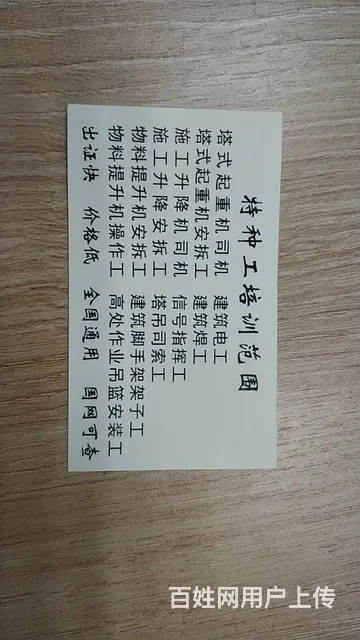 特种工培训范围
塔式起重机司机 建筑电工
塔式起重机安拆工 建筑焊工
施工升降机司机 信号指挥工
施工升降安拆工 塔吊司索工
物料提升机安拆工 建筑脚手架架子工
物料提升机操作工 高处作业吊篮安装工
出证快 价格低 全国通用 国网可查
百姓网用户上传